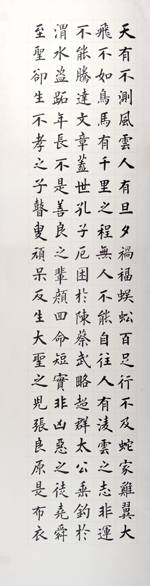 天有不測風雲人有旦夕禍福蜈蚣百足行不及蛇家雞翼大
飛不如鳥馬有千里之程無人不能自往人有凌雲之志非運
不能騰達文章蓋世孔子厄困於陳蔡武略超群太公垂釣於
渭水盜跖年長不是善良之輩顏回命短實非凶惡之徒堯舜
至聖卻生不孝之子瞽叟頑呆反生大聖之兒張良原是布衣